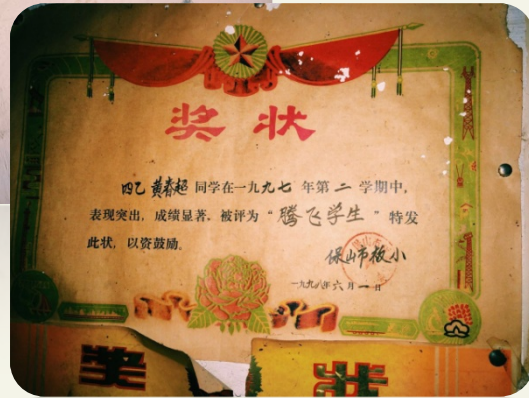 奖状
四乙 黄春超 同学在一九九七 年第 二 学期中,
表现突出, 成绩显著。被评为“腾飞学生”特发
此状, 以资鼓励。
保山市板小
一九九八年六月一日
奖 状